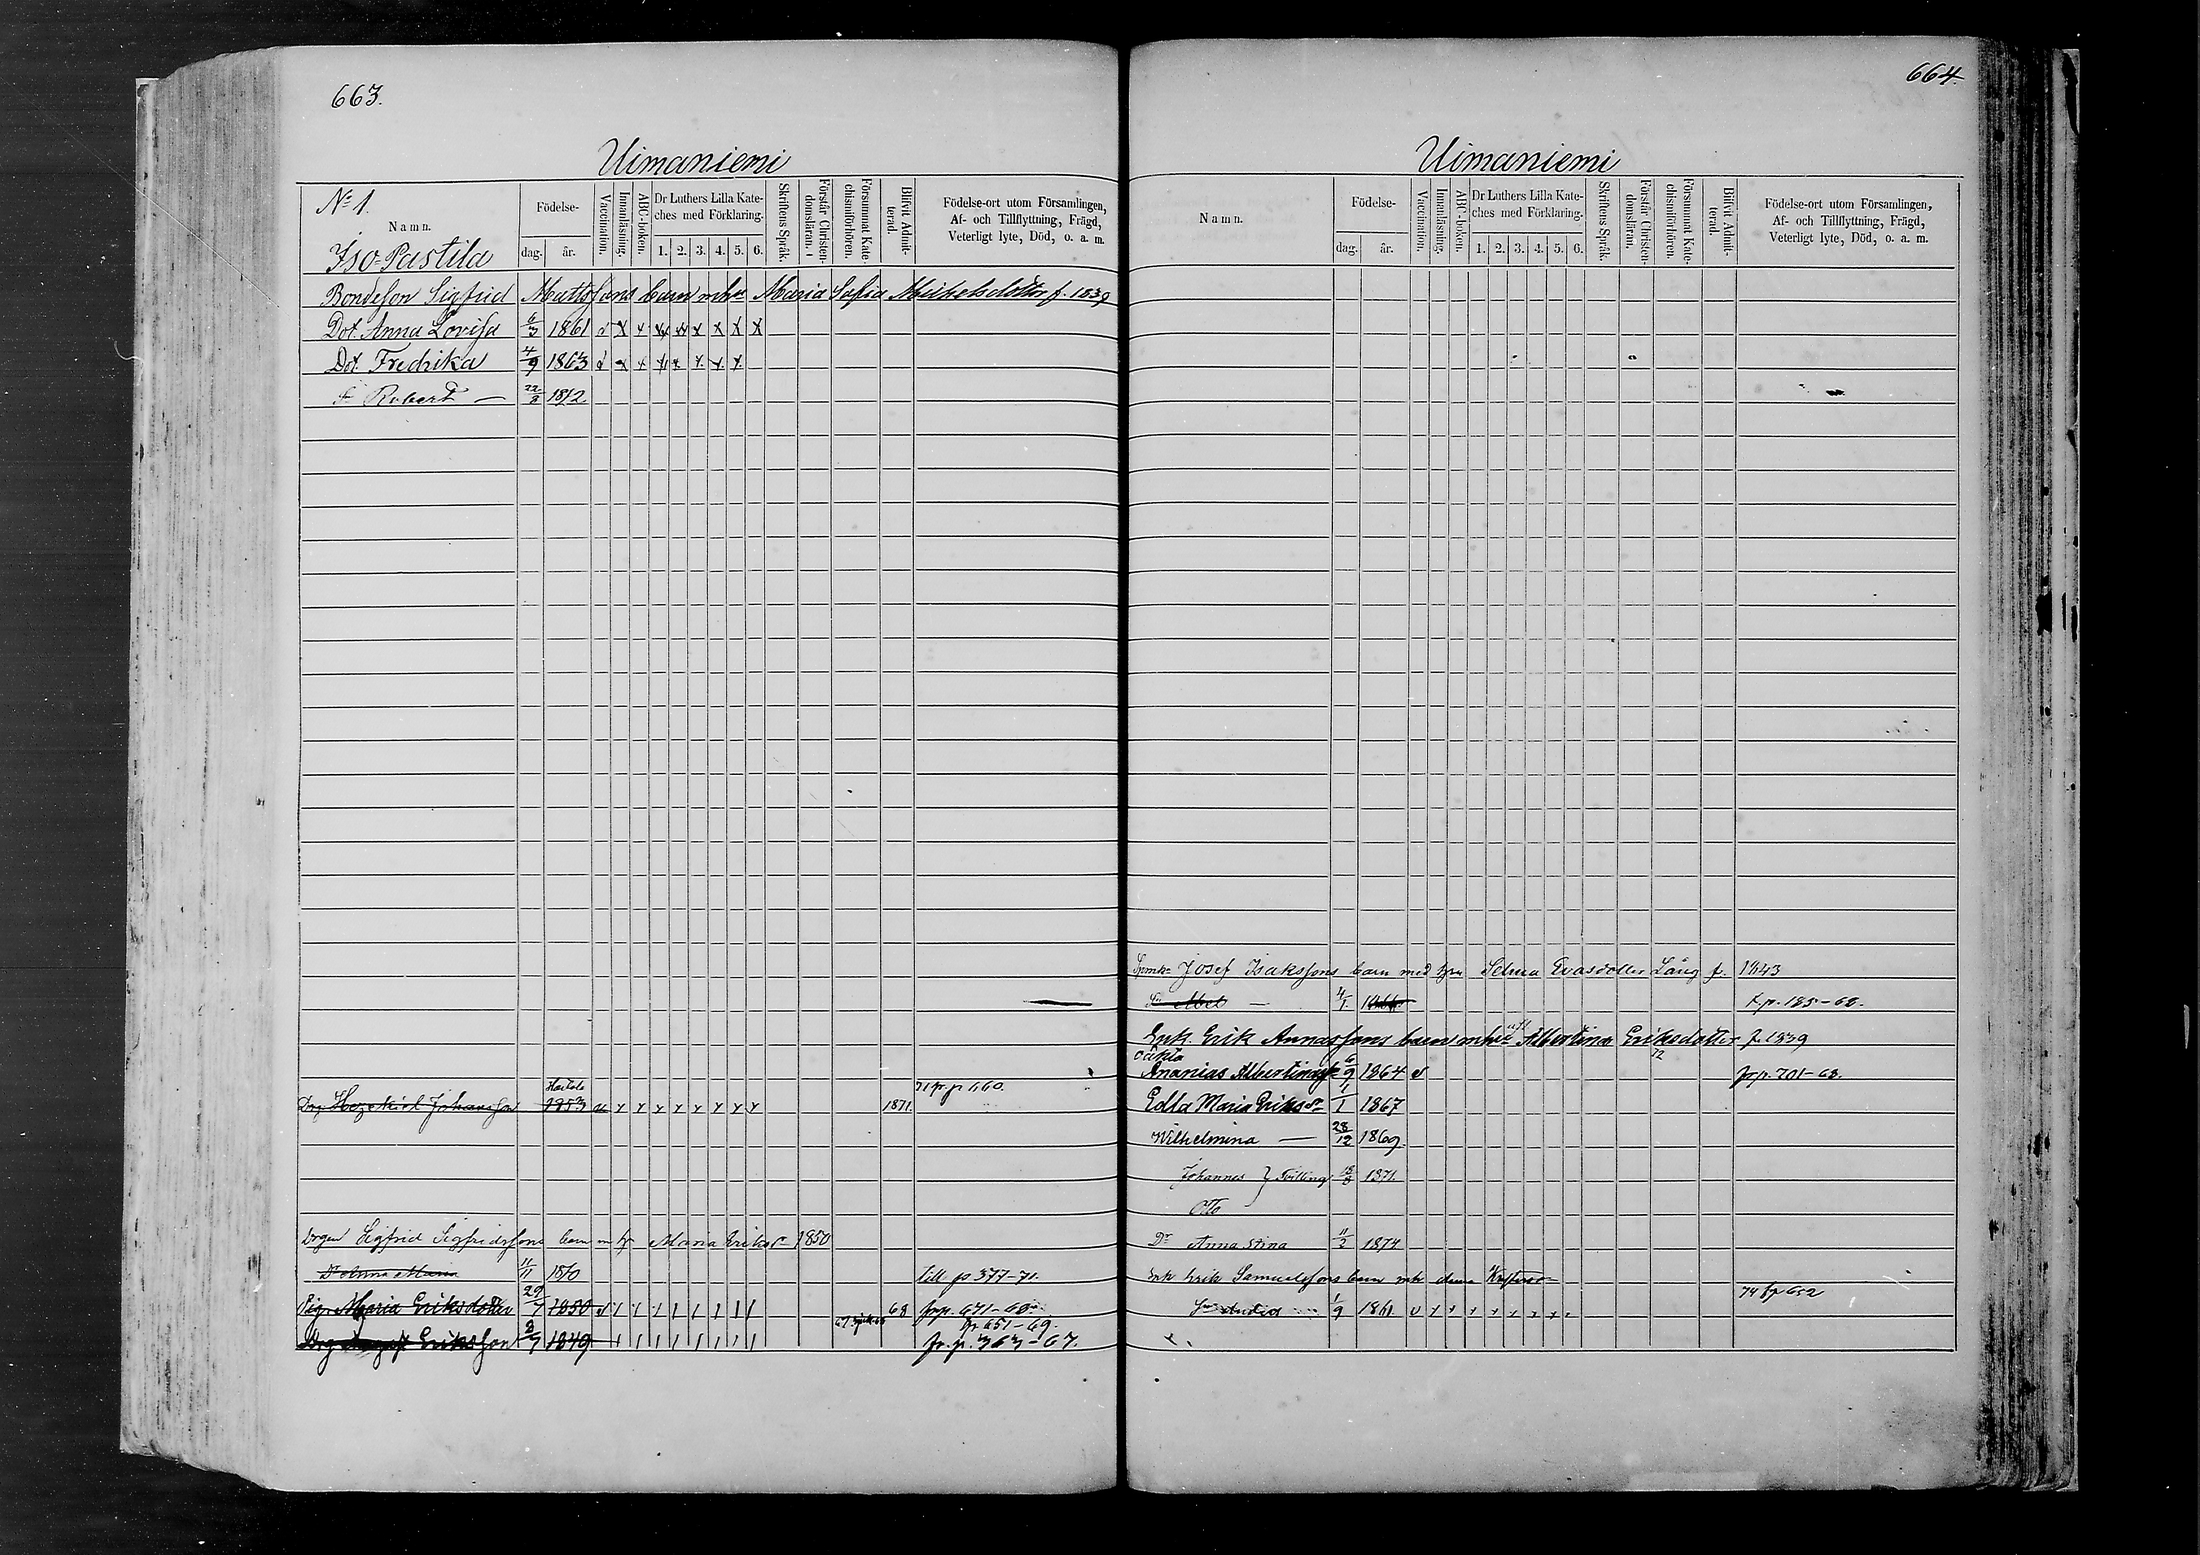 663.
Uimaniemi
No 1.
Namn.
Födelse-
dag. år.
Vaccination.
Innanläsning.
ABC-boken.
Dr Luthers Lilla Kate-
ches med Förklaring.
1. 2. 3. 4. 5. 6.
Skriftens Språk.
Förstår Christen-
domsläran.
Försummat Kate-
chismiförhören.
Blifvit Admit-
terad.
Födelse-ort utom Församlingen,
Af- och Tillflyttning, Frägd,
Veterligt lyte, Död, o. a. m.
Iso-Pastila
Bondeson Sigfrid Mattssons barn mhu Maria Sofia Michelsdotter f. 1839
Dot. Anna Lovisa 6/3 1861 v x x x x x x x x
Dot. Fredrika 4/9 1863 v x x x x x x x
Sn Robert — 22/2 1872
71 fr. p 660.
Drg Hezekiel Johansson 1853 1871.
Drgen Sigfrid Sigfridssons barn m h Maria Eriksdr 1850
Dr Anna Maria 11/11 1870 till p 377-71.
Pig. Maria Eriksdotter 29/7 1850 v 68 fr. p. 671-68
p 651-69.
Drg August Eriksson 1849 fr. p. 363-67.
664.
Uimaniemi
Namn.
Födelse-
dag. år.
Vaccination.
Innanläsning.
ABC-boken.
Dr Luthers Lilla Kate-
ches med Förklaring.
1. 2. 3. 4. 5. 6.
Skriftens Språk.
Förstår Christen-
domsläran.
Försummat Kate-
chismiförhören.
Blifvit Admit-
terad.
Födelse-ort utom Församlingen,
Af- och Tillflyttning, Frägd,
Veterligt lyte, Död, o. a. m.
Josef Isakssons barn med hu Selma Evasdotter Lång f. 1843
Sn Abel — 4/1. t. p. 185-68.
Ink. Erik Annassons barn mhu Albertina Eriksdotter f. 1839
oäkta
Ananias Albertinass 6/9 1864 v fr p. 701-68.
Edla Maria Eriksdr 1/1 1867
Wilhelmina — 28/12 1869.
Johannes } Tvilling 18/8 1871.
Otto
Dr Anna Stina 11/2 1874
Ink Erik Samuelssons barn mh Anna
1/9 1861. v 74 fr 652